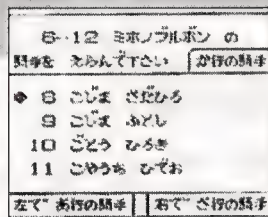 6-12 ミホノブルボン の
騎手を えらんで下さい
か行の騎手
8 こじま さだひろ
9 こじま ふとし
10 ごとう ひろき
11 こやうち ひでお
左で あ行の騎手
右で さ行の騎手